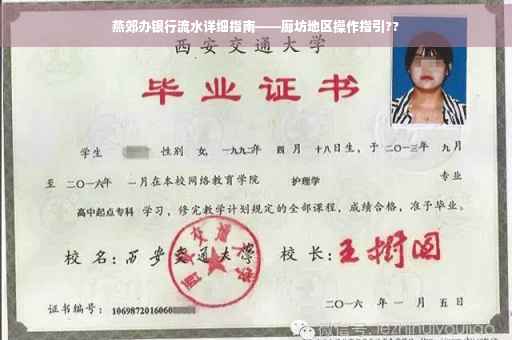 燕郊办银行流水详细指南——廊坊地区操作指引??
西安交通大学
毕业证书
学生 性别 女, 一九九二年 四 月 十八日生, 于 二〇一三年 九月
至 二〇一六年 一月在本校网络教育学院 护理学 专业
高中起点专科 学习, 修完教学计划规定的全部课程, 成绩合格, 准予毕业。
校 名: 西安交通大学 校 长: 王树国
西安交通大学
证书编号: 1069872016060
二〇一六 年 一 月 五 日
微信号: jezhinuiyoujiao